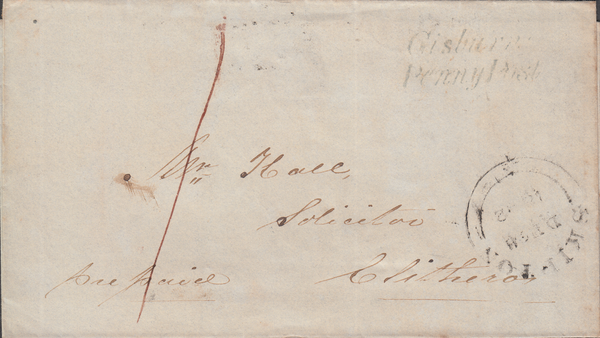 Gisburn
Penny Post
1
Mr Hall,
Solicitor
Clitheroe
pre paid
SKIPTON